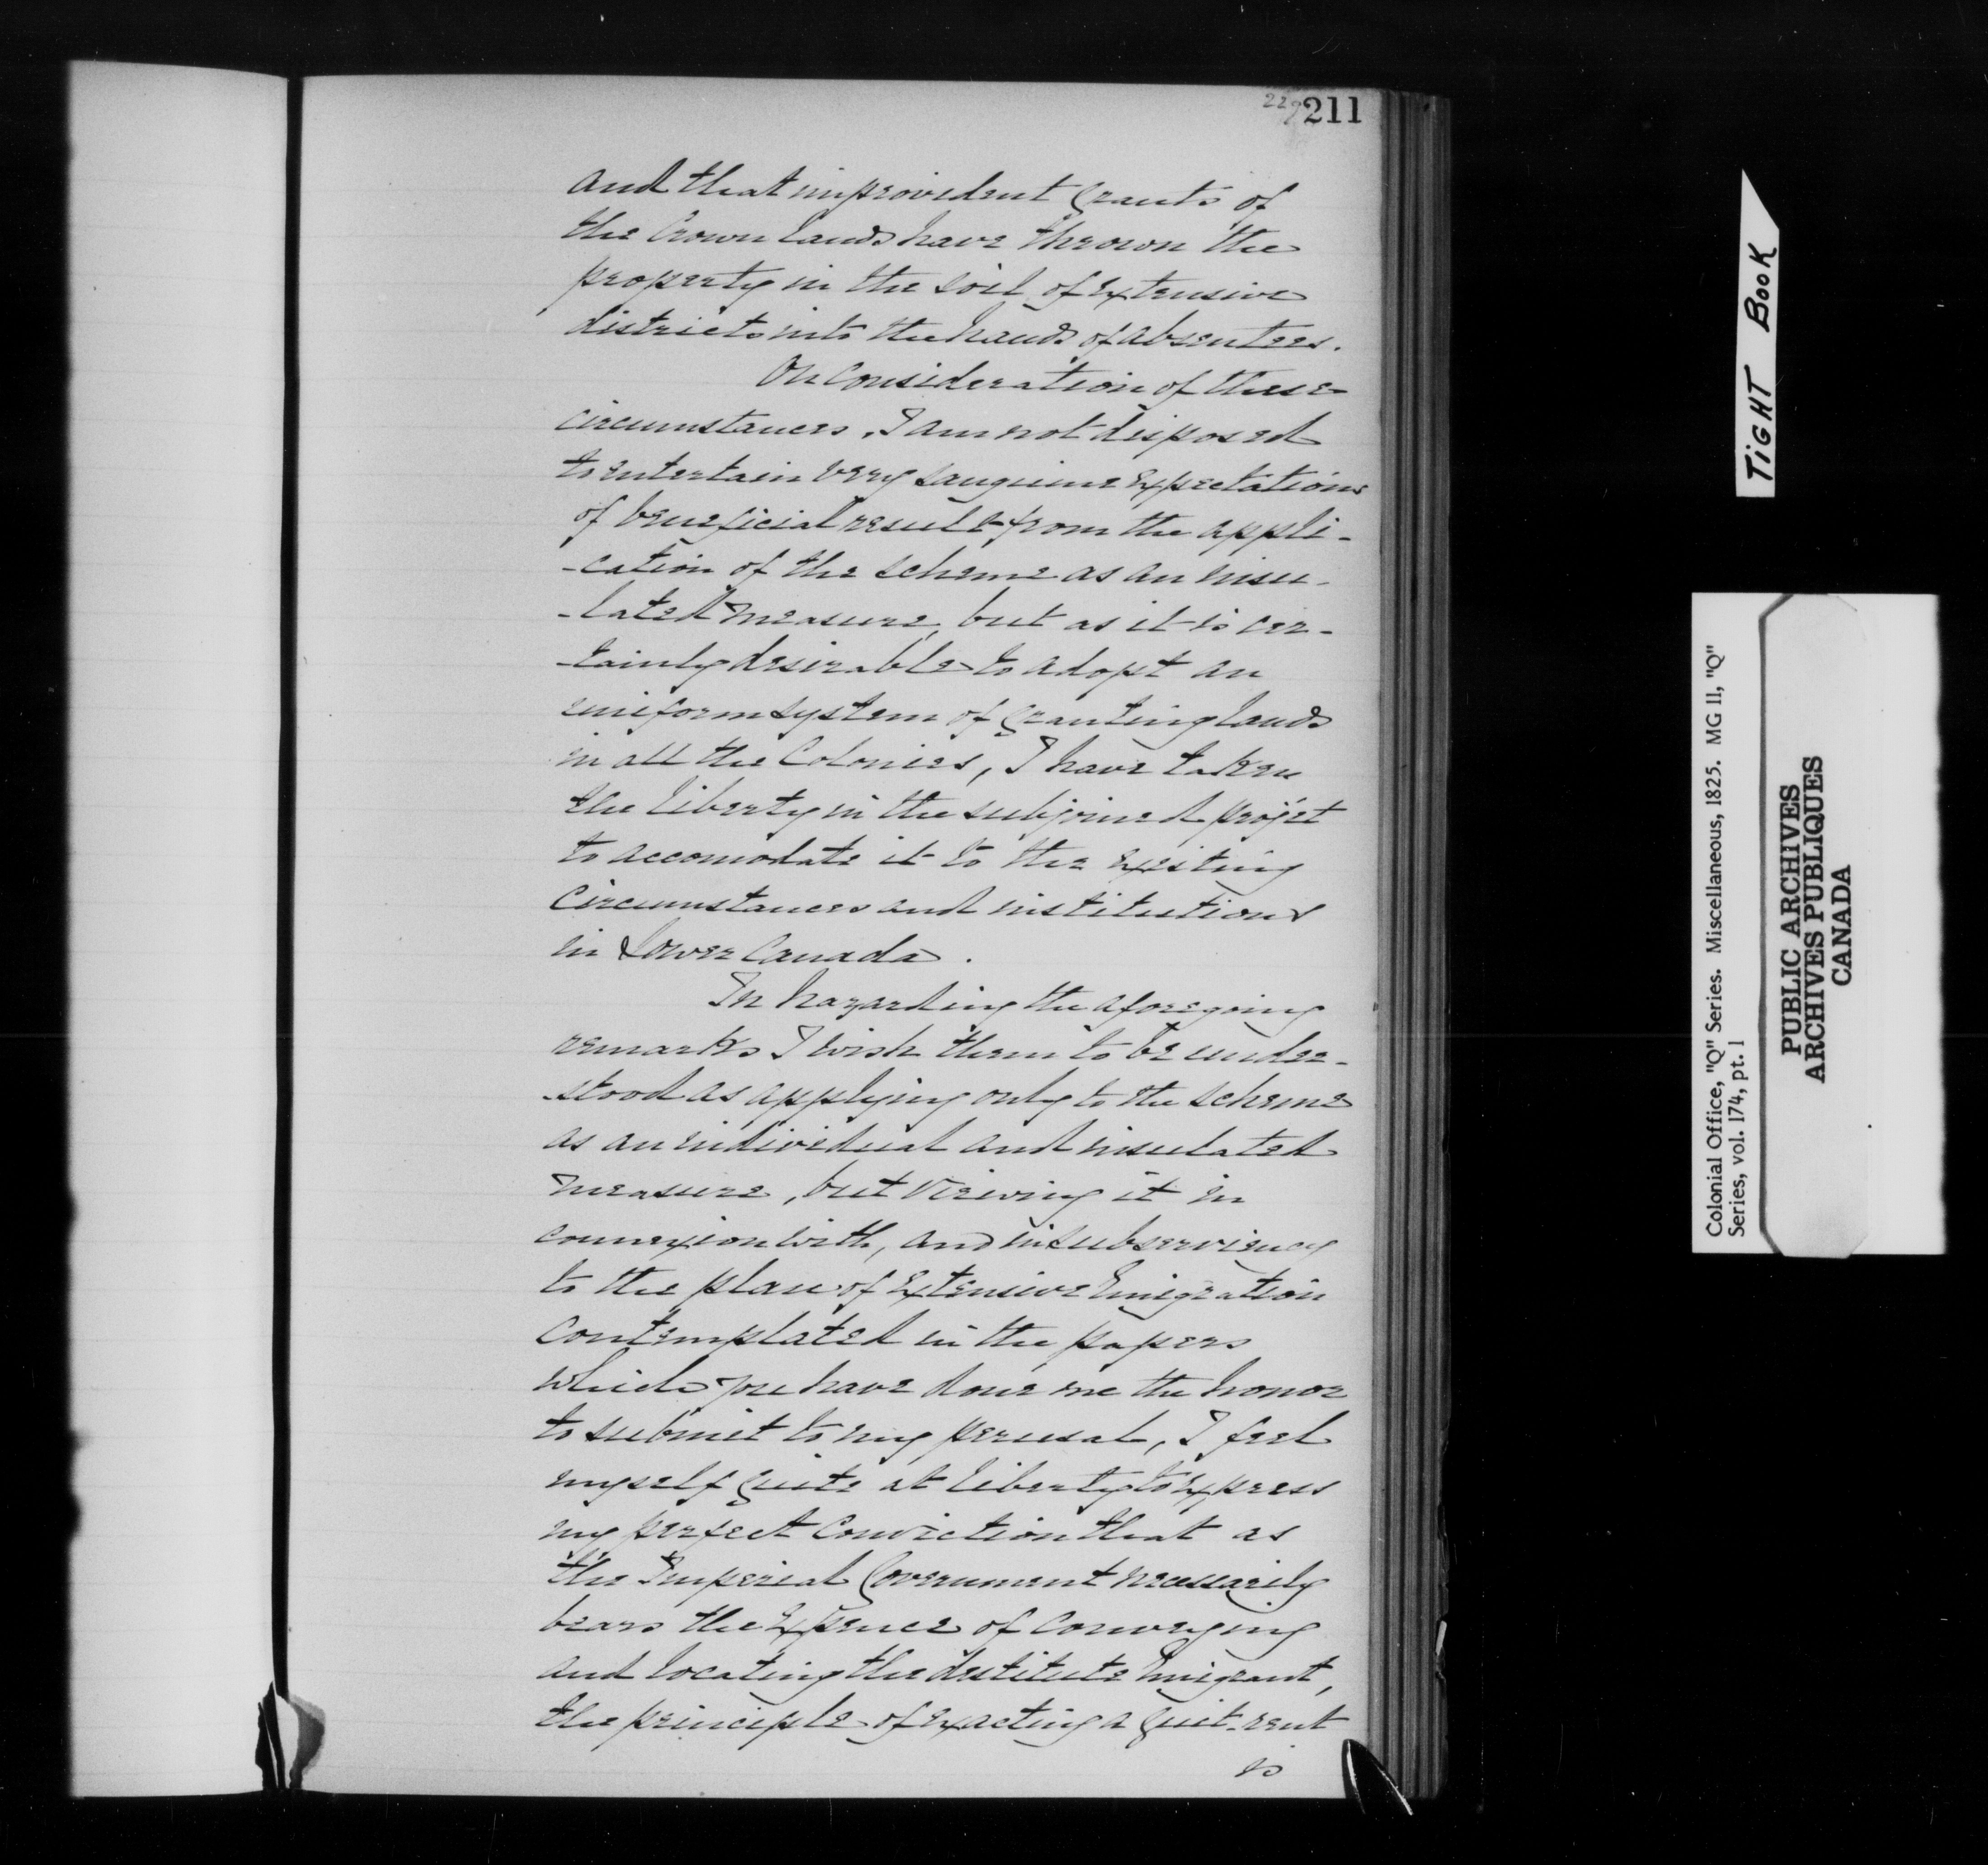 211
and that improvident grants of
the Crown lands have thrown the
property in the soil of extensive
districts into the hands of absentees.
On consideration of these
circumstances, I am not disposed
to entertain very sanguine expectations
of beneficial result from the appli-
-cation of the scheme as an insu-
-lated measure, but as it is cer-
-tainly desirable to adopt an
uniform system of granting lands
in all the Colonies, I have taken
the liberty in the subjoined projet
to accomodate it to the existing
circumstances and institutions
in Lower Canada.
In hazarding the aforegoing
remarks I wish them to be under-
-stood as applying only to the scheme
as an individual and insulated
measure, but viewing it in
connexion with, and in subserviency
to the plan of extensive Emigration
contemplated in the papers
which you have done me the honor
to submit to my perusal, I feel
myself quite at liberty to express
my perfect conviction that as
the Imperial Government necessarily
bears the expence of conveying
and locating the destitute Emigrant,
the principle of exacting a quit-rent
is
TIGHT BOOK
Colonial Office, "Q" Series. Miscellaneous, 1825. MG 11, "Q"
Series, vol. 174, pt. 1
PUBLIC ARCHIVES
ARCHIVES PUBLIQUES
CANADA